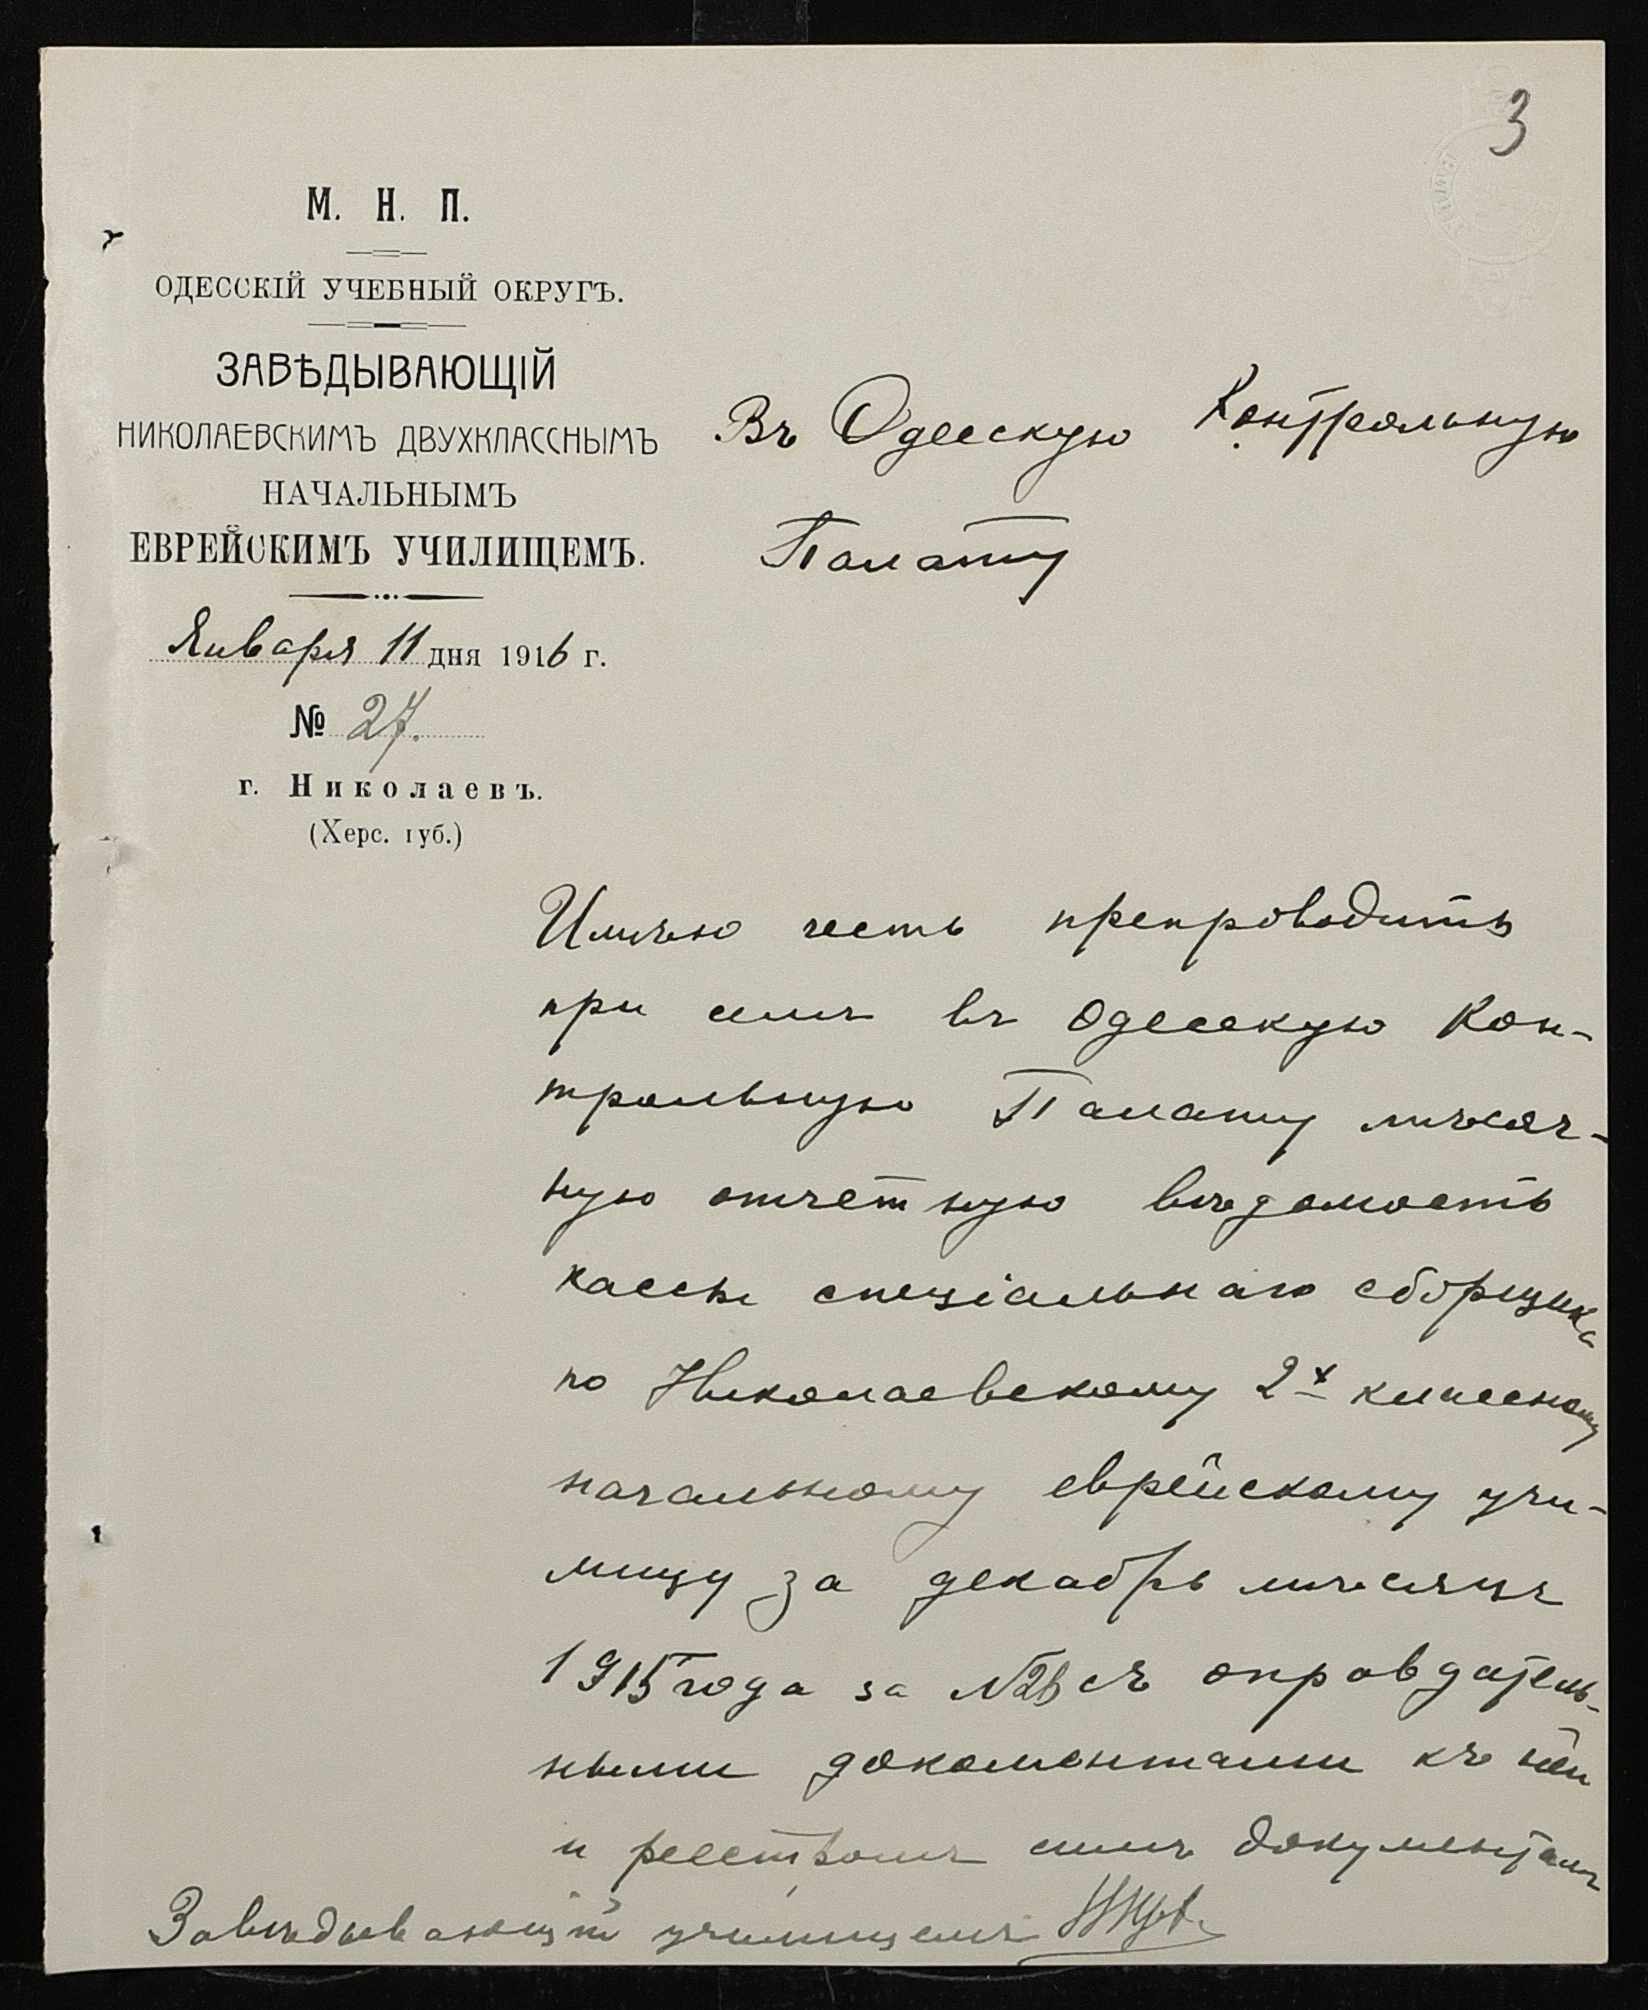 3
М. Н. П.
ОДЕССКІЙ УЧЕБНЫЙ ОКРУГЪ.
ЗАВѢДЫВАЮЩІЙ
НИКОЛАЕВСКИМЪ ДВУХКЛАССНЫМЪ
НАЧАЛЬНЫМЪ
ЕВРЕЙСКИМЪ УЧИЛИЩЕМЪ.
Января 11 дня 1916 г.
№ 27.
г. Николаевъ.
(Херс. губ.)
Въ Одесскую Контрольную
Палату
Имѣю честь препроводить
при семъ въ Одесскую Кон-
трольную Палату мѣсяч-
ную отчетную вѣдомость
кассы спеціальнаго сборщика
по Николаевскому 2х классному
начальному еврейскому учи-
лищу за декабрь мѣсяцъ
1915 года за №26 съ оправдатель-
ными докоментами къ ней
и реестромъ симъ документамъ
Завѣдывающій училищемъ